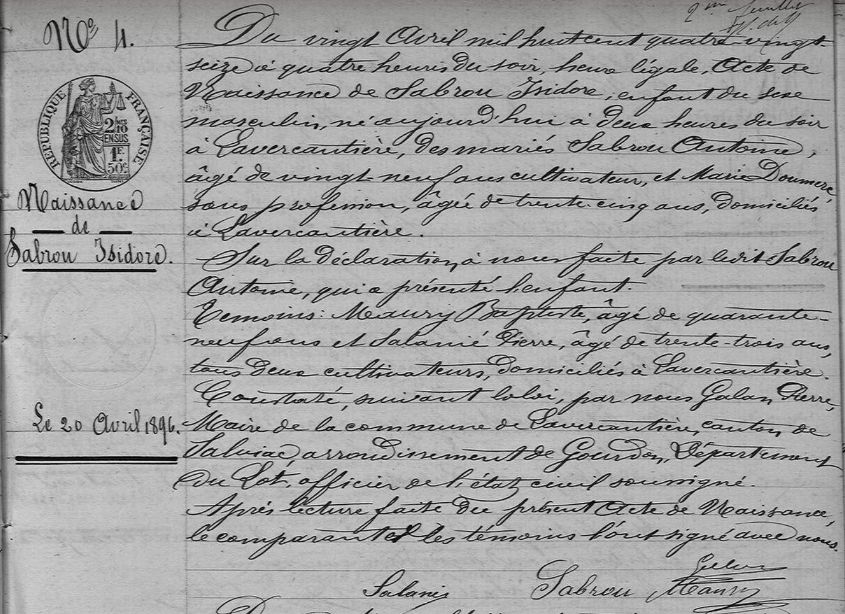 N° 4.
RÉPUBLIQUE FRANÇAISE
2/10 EN SUS
1F 50c
Naissance
de
Sabrou Isidore.
Le 20 Avril 1896.
Du vingt Avril mil huit cent quatre-vingt-
seize à quatre heures du soir, heure légale, Acte de
Naissance de Sabrou Isidore, enfant du sexe
masculin, né aujourd'hui à deux heures du soir
à Lavercantière, des mariés Sabrou Antoine,
âgé de vingt neuf ans cultivateur, et Marie Doumerc,
sans profession, âgée de trente-cinq ans, domiciliés
à Lavercantière.
Sur la déclaration, à nous faite par ledit Sabrou
Antoine, qui a présenté l'enfant.
Témoins: Maury Baptiste, âgé de quarante-
neuf ans et Salanié Pierre, âgé de trente-trois ans,
tous deux cultivateurs, domiciliés à Lavercantière.
Constaté, suivant la loi, par nous Galan Pierre,
Maire de la commune de Lavercantière, canton de
Salviac arrondissement de Gourdon, Département
du Lot, officier de l'état civil soussigné.
Après lecture faite du présent Acte de Naissance,
le comparant et les témoins l'ont signé avec nous.
Salanié Sabrou Maury